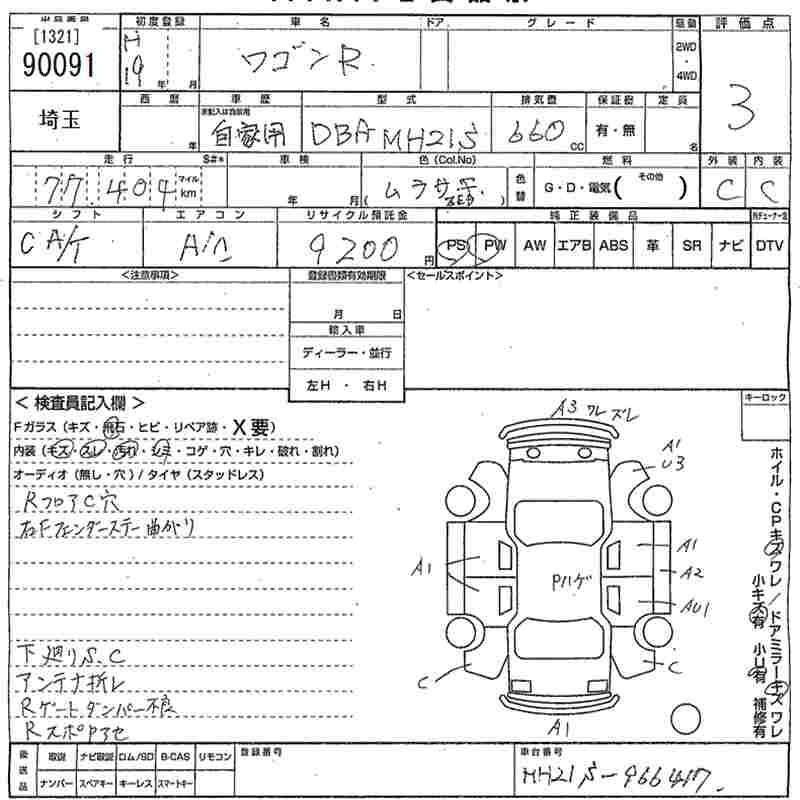 [1321]
90091
埼玉
初度登録
H
19
年 月
車名
ワゴンR
ドア
グレード
駆動
2WD
・
4WD
評価点
3
西暦
年
車歴
未記入は自家用
自家用
型式
DBA MH21S
排気量
660
cc
保証書
有・無
定員
名
走行
77,404
マイル
km
S#*
車検
年 月
色(Col.No)
(ムラサキ.
ZED)
色替
燃料
G・D・電気( その他 )
外装
C
内装
C
シフト
C A/T
エアコン
A/C
リサイクル預託金
9200
円
純正装備品
PS PW AW エアB ABS 革 SR ナビ
DTV
<注意事項>
登録書類有効期限
月 日
輸入車
ディーラー・並行
左H ・ 右H
<セールスポイント>
<検査員記入欄>
Fガラス(キズ・飛石・ヒビ・リペア跡・X要)
内装(キズ・スレ・汚れ・シミ・コゲ・穴・キレ・破れ・割れ)
オーディオ(無し・穴)/タイヤ(スタッドレス)
RフロアC穴
右Fフェンダーステー曲がり
下廻りS.C
アンテナ折レ
Rゲートダンパー不良
RスポPアセ
A3 ワレ ズレ
A1
U3
A1
A1
A2
AU1
Pハゲ
C
C
A1
キーロック
ホイル・CPキズワレ/ドアミラーキズワレ
小キズ有 小U有 補修有
後送品
取説 ナビ取説 ロム/SD B-CAS リモコン
ナンバー スペアキー キーレス スマートキー
登録番号
車台番号
MH21S-966417.